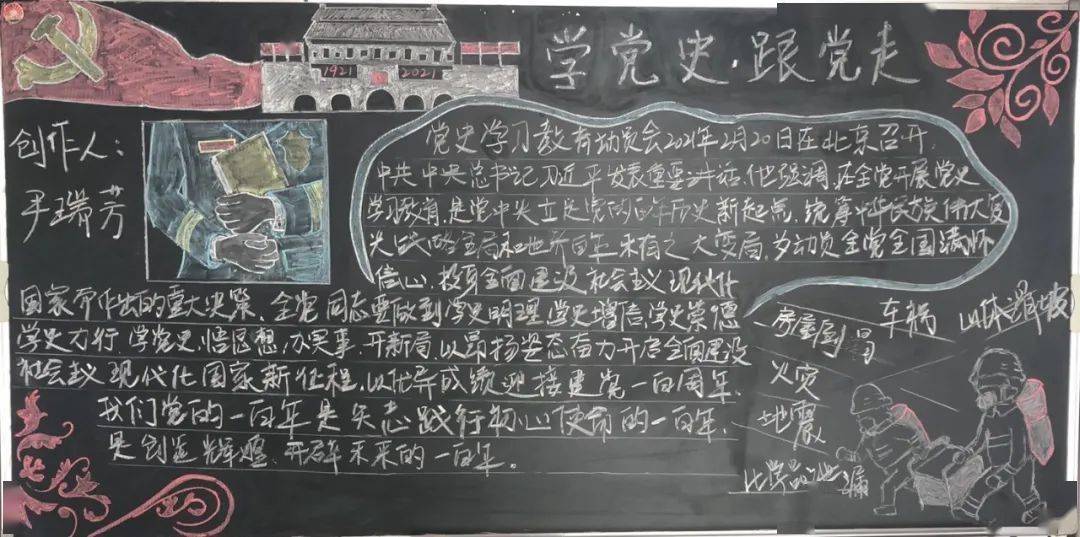 学党史·跟党走
1921 2021
创作人：
尹瑞芳
党史学习教育动员会2021年2月20日在北京召开，
中共中央总书记习近平发表重要讲话，他强调，在全党开展党史
学习教育，是党中央立足党的百年历史新起点，统筹中华民族伟大复
兴战略全局和世界百年未有之大变局，为动员全党全国满怀
信心，投身全面建设社会主义现代化
国家而作出的重大决策，全党同志要做到学史明理，学史增信，学史崇德
学史力行，学党史，悟思想，办实事，开新局，以昂扬姿态奋力开启全面建设
社会主义现代化国家新征程，以优异成绩迎接建党一百周年，
我们党的一百年是矢志践行初心使命的一百年，
是创造辉煌、开辟未来的一百年。
房屋倒塌
车祸
山体滑坡
火灾
地震
化学品泄漏